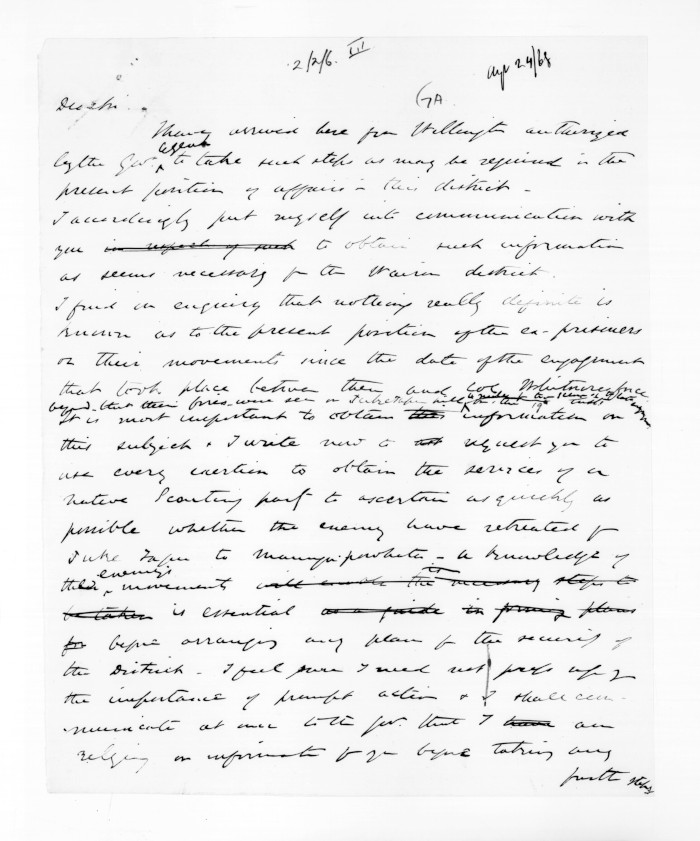 2/2/6. III
Aug 24/68
GA
Dear Sir
Having arrived here from Wellington authorized
by the Govt. Agent to take such steps as may be required in the
present position of affairs in this district -
I accordingly put myself into communication with
you in respect of such to obtain such information
as seems necessary for the Wairoa district.
I find on enquiry that nothing really definite is
known as to the present position of the ex-prisoners
or their movements since the date of the engagement
that took place between them and Col. Whitmore's force
beyond that their fires were seen on
It is most important to obtain this information on
this subject & I write now to request you to
use every exertion to obtain the services of a
native Scouting party to ascertain as quickly as
possible whether the enemy have retreated
to - a knowledge of
their enemy's movements will enable the necessary steps to
be taken is essential as a guide in forming plans
for before arranging any plan for the security of
the District. I feel sure I need not press upon you
the importance of prompt action & I shall com-
municate at once to the Govt. that I have am
relying on information from you before taking any
further steps